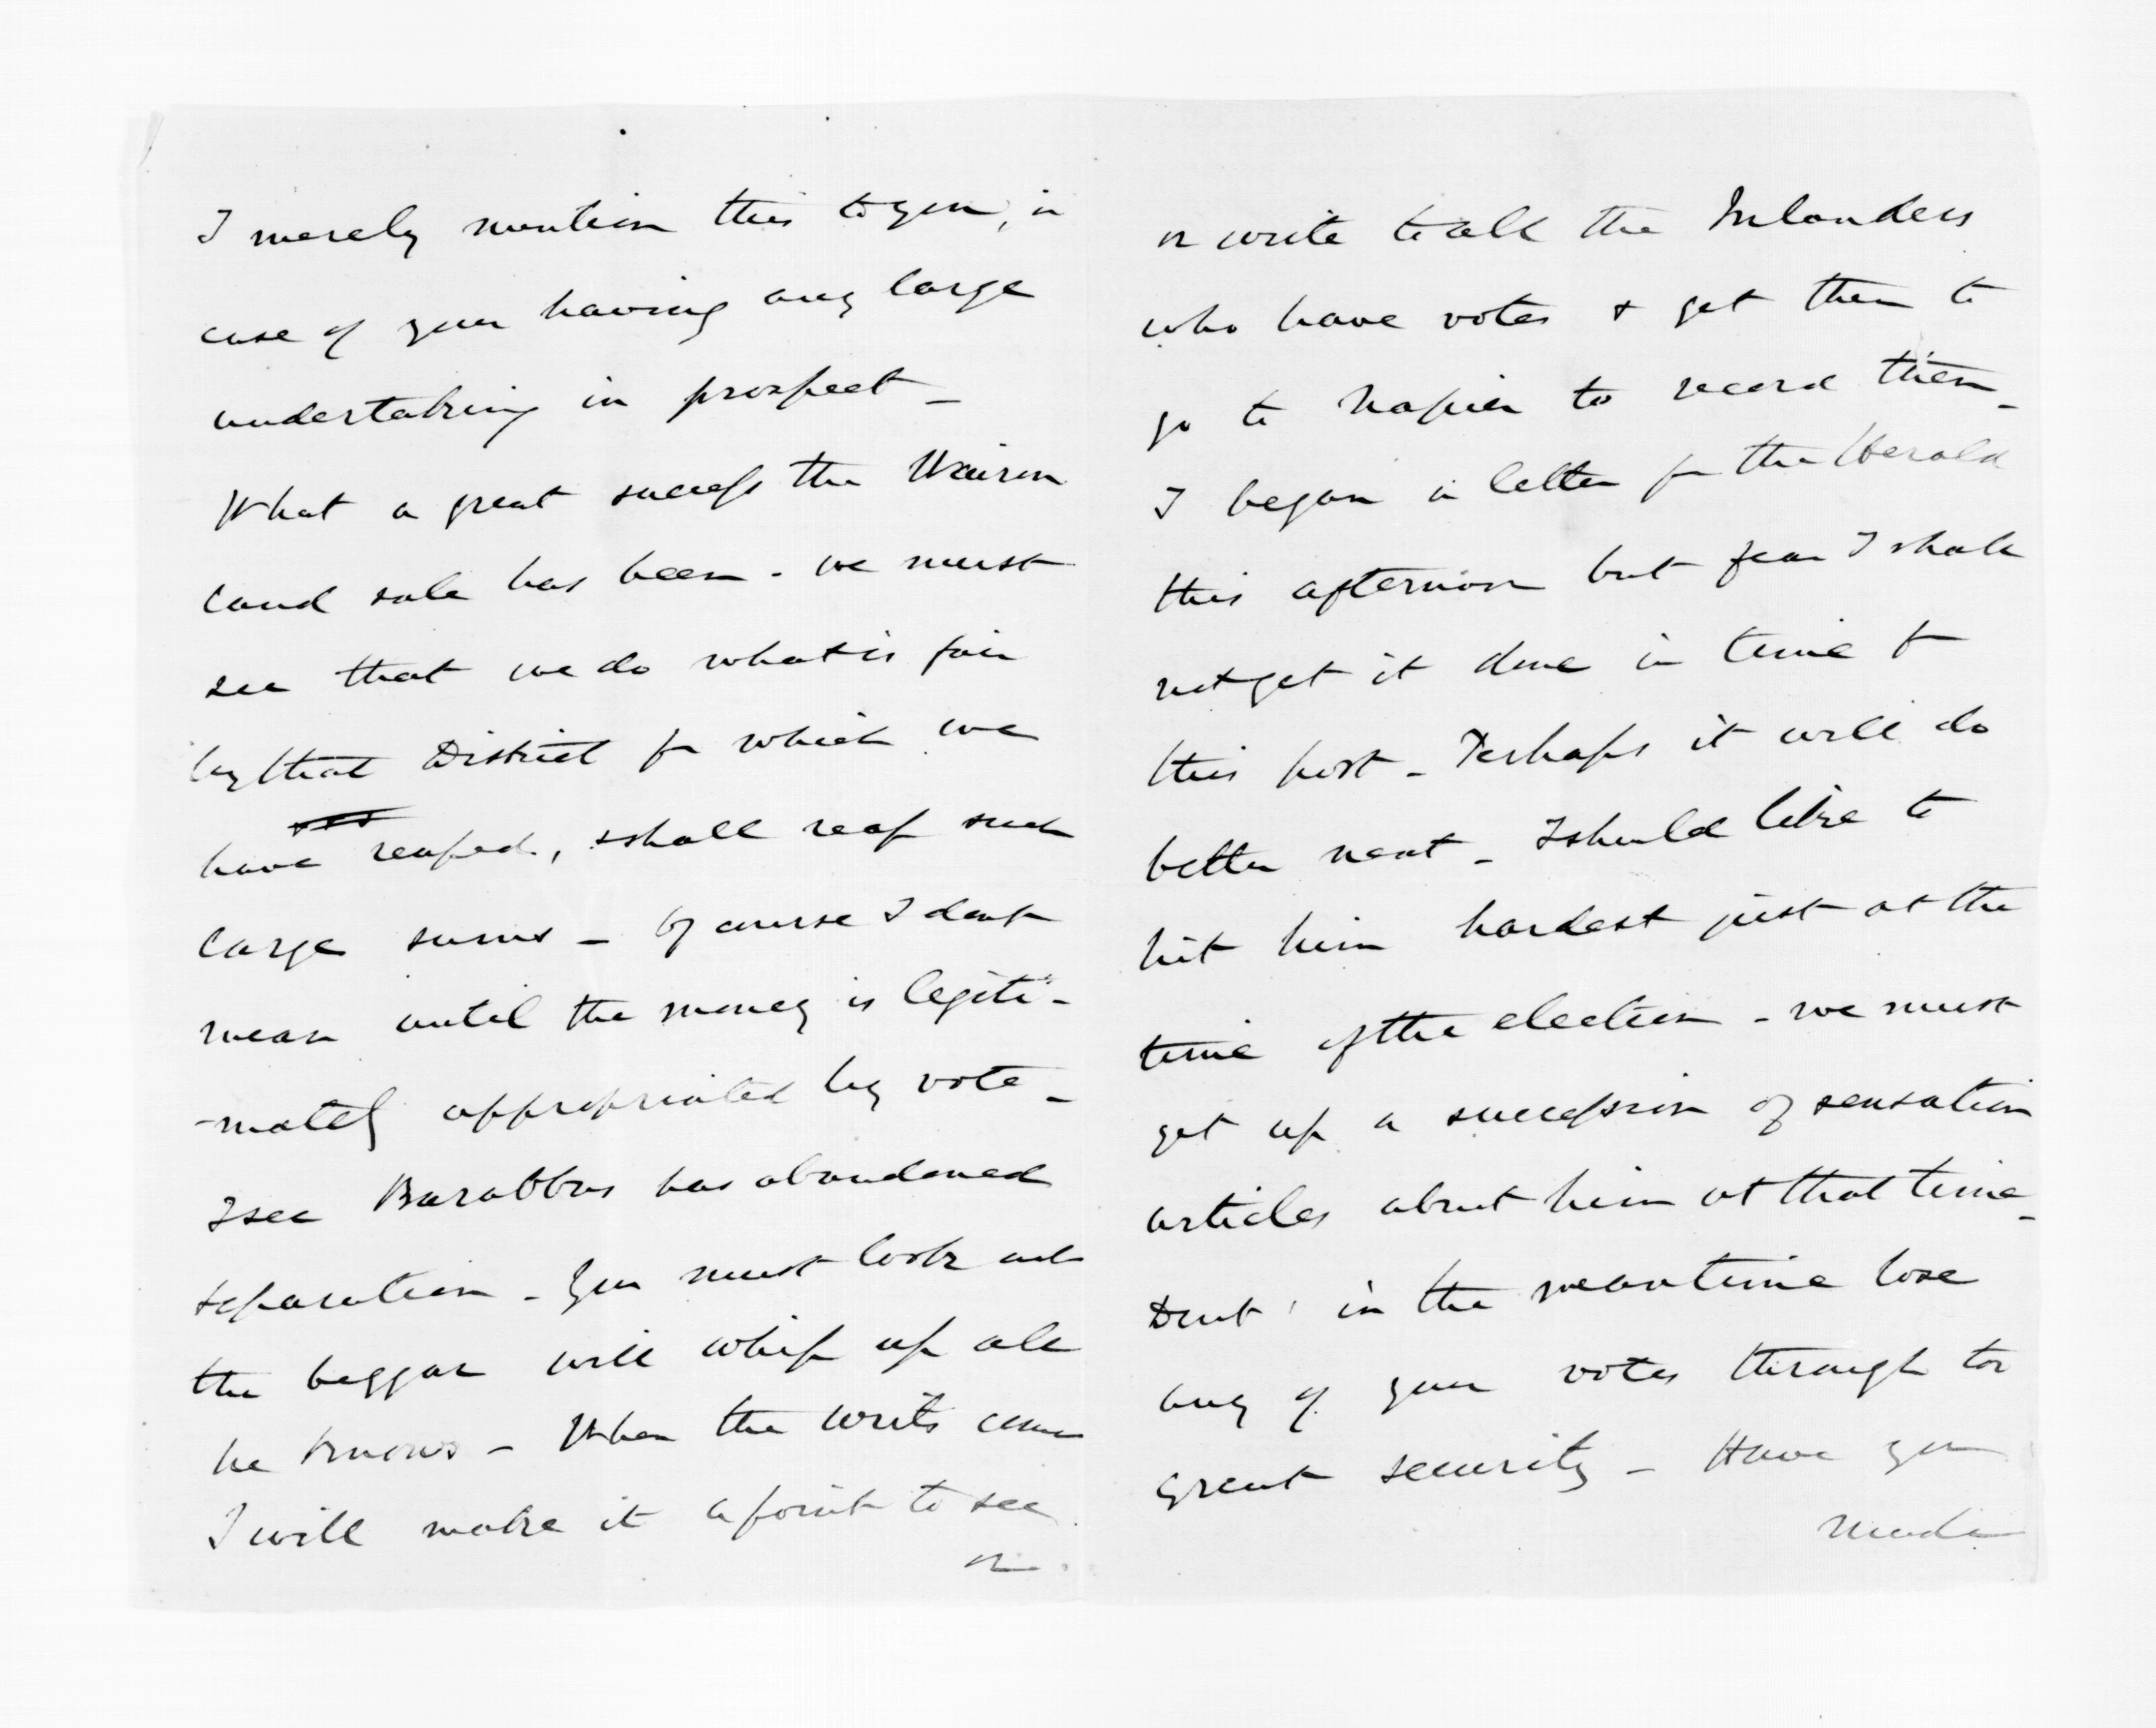 I merely mention this to you, in
case of your having any large
undertaking in prospect _
What a great success the Wairoa
land sale has been - we must
see that we do what is fair
by that District for which we
have reaped, & shall reap such
large sums _ Of course I dont
mean until the money is legiti-
-mately appropriated by vote _
I see Barabbas has abandoned
separation - You must look out
the beggar will whip up all
he knows - When the writs come
I will make it a point to see
or
or write to all the Inlanders
who have votes & get them to
go to Napier to record them _
I began a letter for the Herald
this afternoon but fear I shall
not get it done in time for
this post - Perhaps it will do
better next - I should like to
hit him hardest just at the
time of the election - we must
get up a succession of sensation
articles about him at that time _
Dont in the meantime lose
any of your votes through too
great security - Have you
made